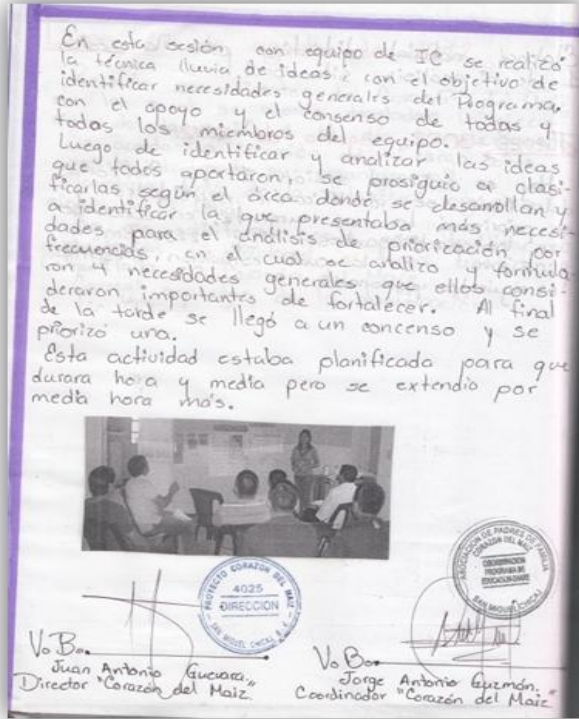 En esta sesión con equipo de IC se realizó
la técnica lluvia de ideas; con el objetivo de
identificar necesidades generales del Programa,
con el apoyo y el consenso de todas y
todos los miembros del equipo.
Luego de identificar y analizar las ideas
que todos aportaron, se prosiguio a clasi-
ficarlas según el área donde se desarrollan y
a identificar la que presentaba más necesi-
dades para el análisis de priorización por
frecuencias, en el cual se analizo y formula-
ron 4 necesidades generales que ellos consi-
deraron importantes de fortalecer. Al final
de la tarde se llegó a un concenso y se
priorizó una.
Esta actividad estaba planificada para que
durara hora y media pero se extendio por
media hora más.
PROYECTO CORAZON DEL MAIZ
4025
DIRECCION
SAN MIGUEL CHICAJ, B.V.
ASOCIACION DE PADRES DE FAMILIA
CORAZON DEL MAIZ
COORDINACION
PROGRAMA DE
EDUCACION
SAN MIGUEL CHICAJ
Vo Bo.
Juan Antonio Guevara.
Director "Corazón del Maiz
Vo Bo.
Jorge Antonio Guzmán.
Coordinador "Corazón del Maiz"